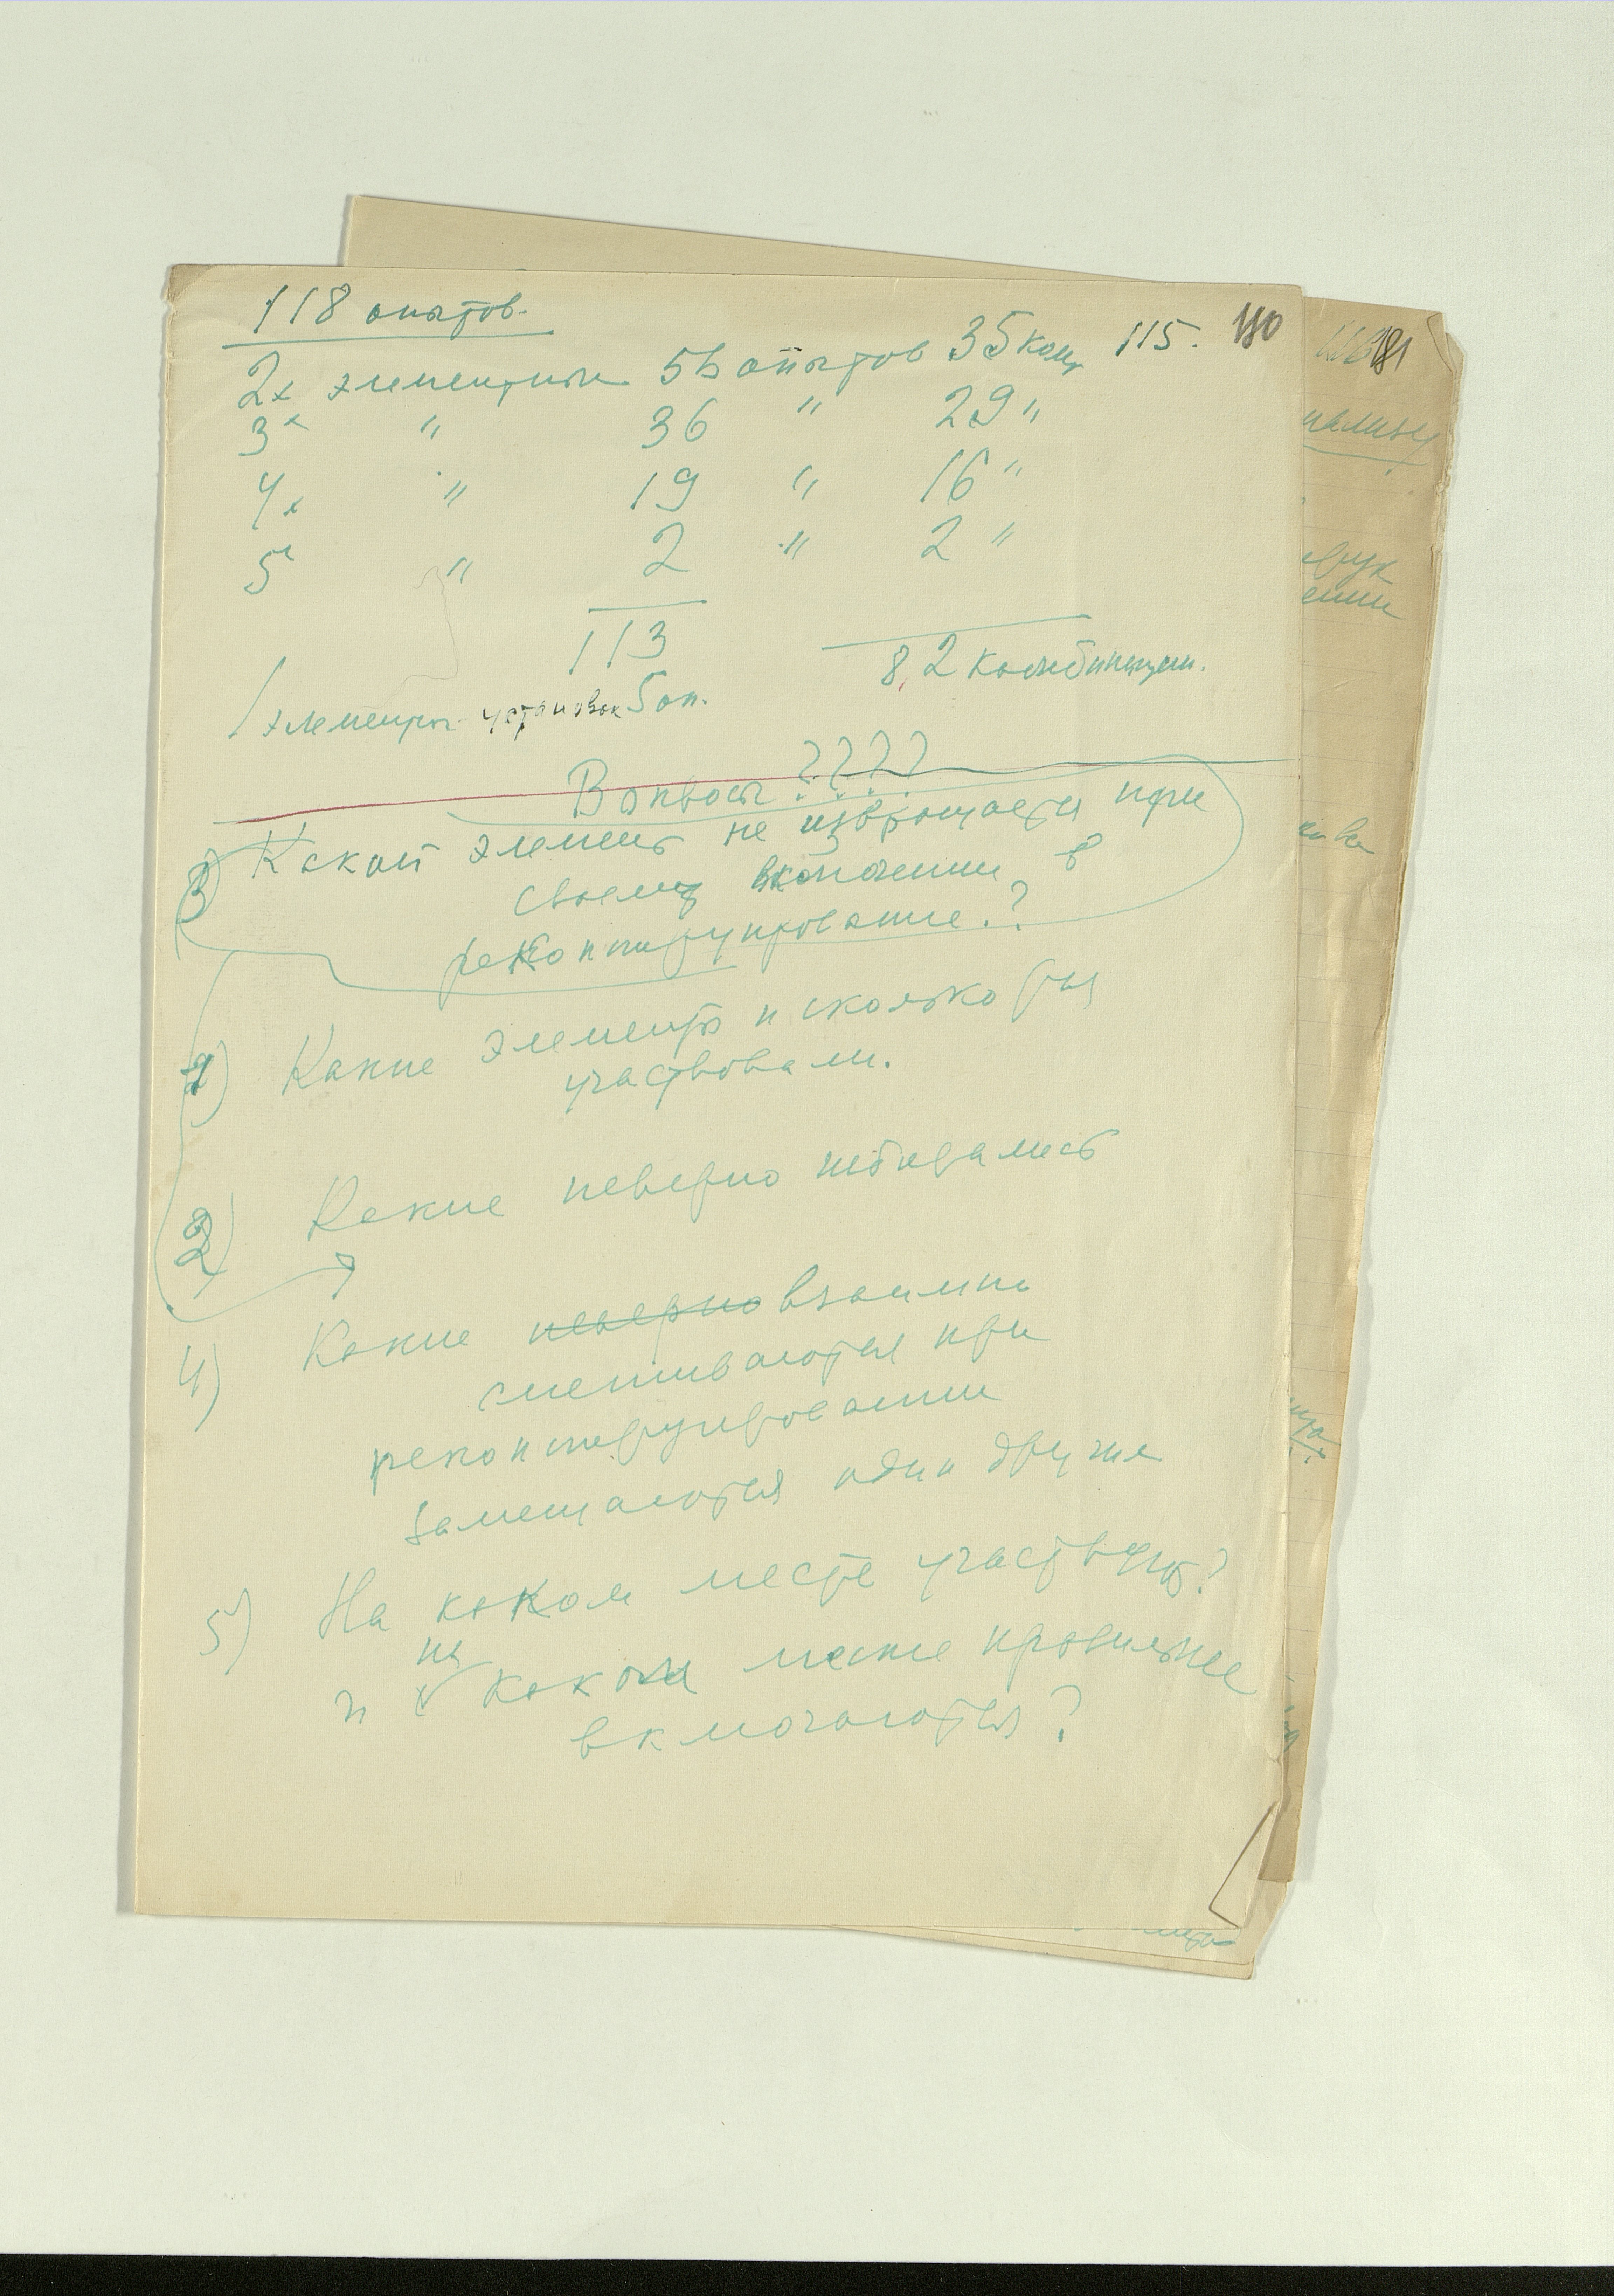 118 опытов.
2х элементных 56 опытов 35 комп 115. 180
3х " 36 " 29 "
4х " 19 " 16 "
5х " 2 " 2 "
113
82 комбинации.
1 элементы установок 5 оп.
Вопросы ????
3) Какой элемент не извращается при
своему включении в
реконструирование.?
1) Какие элементы и сколько раз
участвовали.
2) Какие неверно избирались
4) Какие неверно взаимно
смешиваются при
реконструировании
замещаются один другие
5) На каком месте участвует?
и на каком месте правильнее
включаются?
181